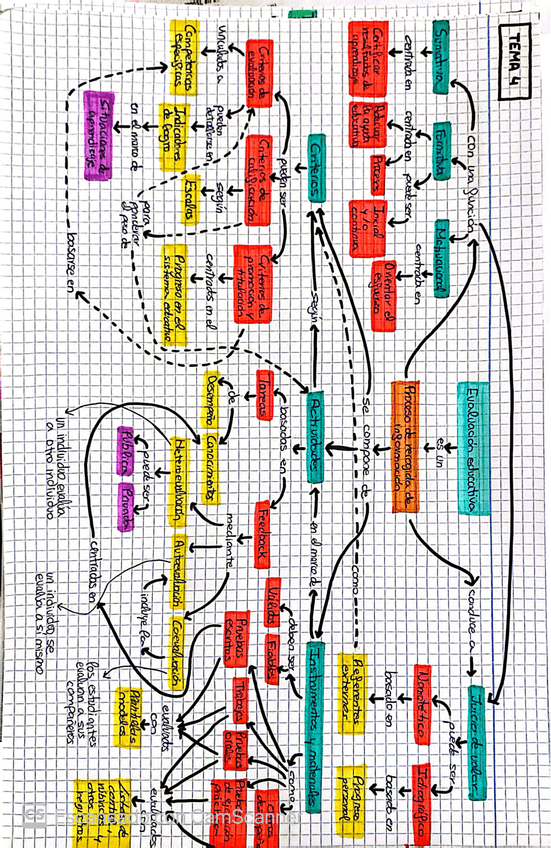 TEMA 4
Evaluación educativa
es un
Proceso de recogida de
información
con una función
Sumativa
centrada en
Certificar
resultados de
aprendizaje
Formativa
centrada en
Adecuar
la ayuda
educativa
puede ser
Inicial
y/o
continua
Motivacional
centrada en
Orientar el
esfuerzo
conduce a
Juicio de valor
puede ser
Nomotético
basado en
Referentes
externos
Idiográfico
basado en
Progreso
personal
se compone de
como
Criterios
según
Actividades
en el marco de
Instrumentos y materiales
pueden ser
Criterios de
evaluación
vinculados a
Competencias
específicas
pueden
detallarse en
Indicadores
de logro
en el marco de
Situaciones de
aprendizaje
Criterios de
calificación
según
Escalas
para
ponderar
el peso de
Criterios de
promoción y
titulación
centrados en el
Progreso en el
sistema educativo
basarse en
basadas en
Tareas
de
Desempeño
Conocimientos
Feedback
mediante
Heteroevaluación
puede ser
Pública
Privada
Autoevaluación
incluye la
Coevaluación
centrados en
un individuo evalúa
a otro individuo
un individuo se
evalúa a sí mismo
los estudiantes
evalúan a sus
compañeros
deben ser
Válidos
Fiables
como
Pruebas
escritas
Trabajos
Pruebas
orales
evaluados
con
Plantillas
modelos
evaluados
CS Escaneado con CamScanner